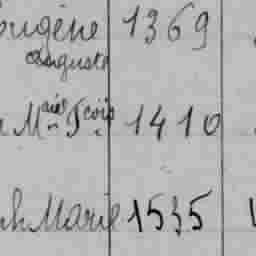 Eugène 1369
Auguste
Mario Fcois 1410
Marie 1535